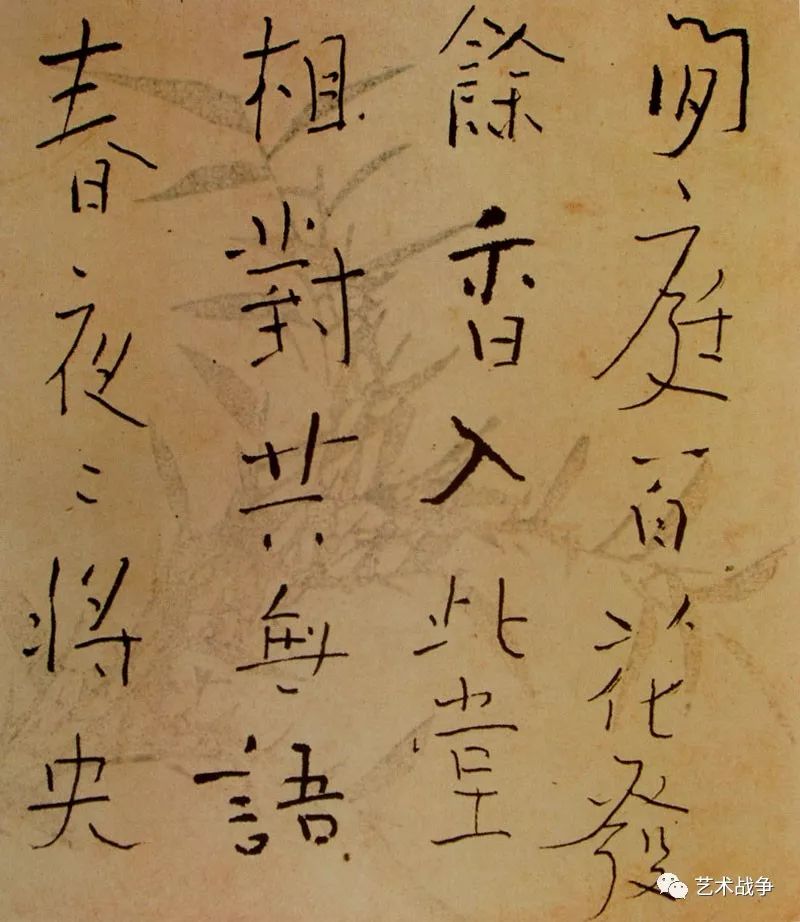 閒庭百花發
餘香入此堂
相對共無語
春夜〻将央
艺术战争